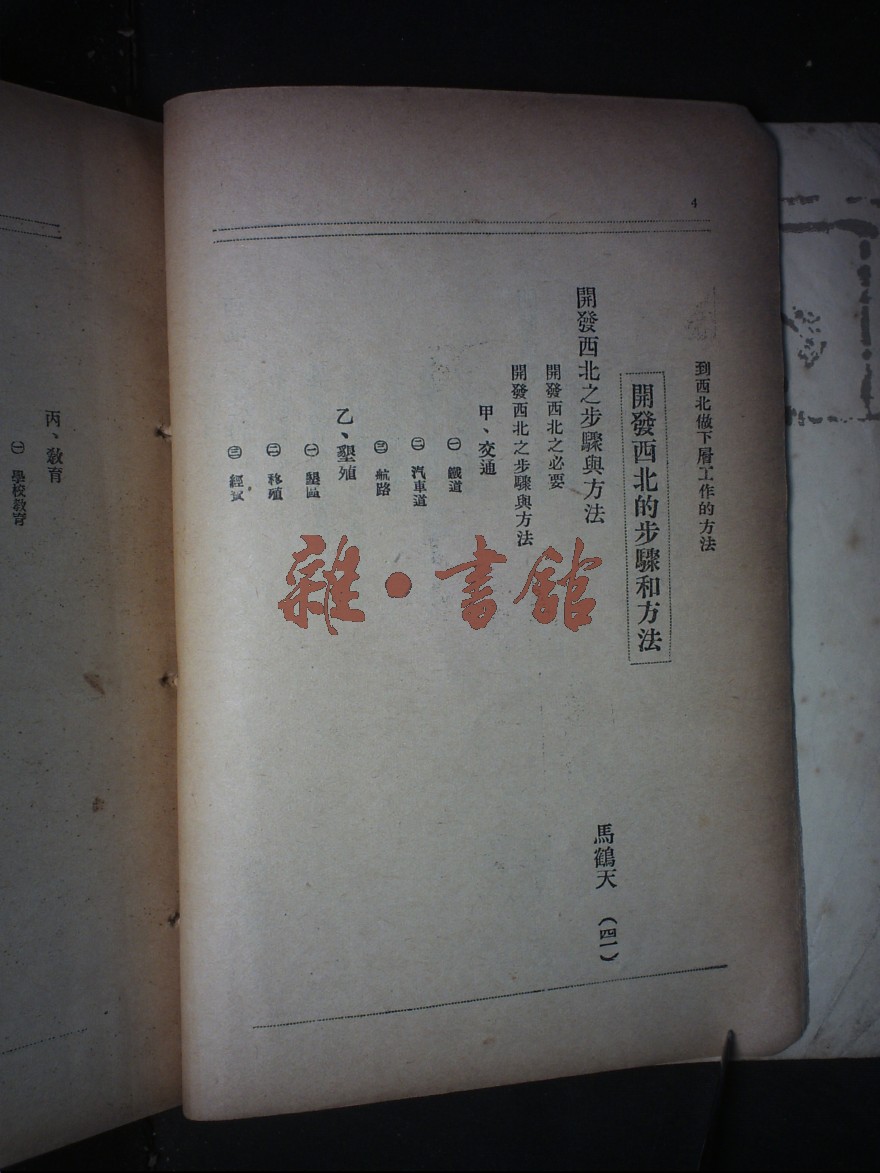 4
到西北做下層工作的方法
開發西北的步驟和方法
開發西北之步驟與方法 馬鶴天 （四一）
開發西北之必要
開發西北之步驟與方法
甲、交通
㊀ 鐵道
㊁ 汽車道
㊂ 航路
乙、墾殖
㊀ 墾區
㊁ 移殖
㊂ 經費
丙、教育
㊀ 學校教育
雜·書館